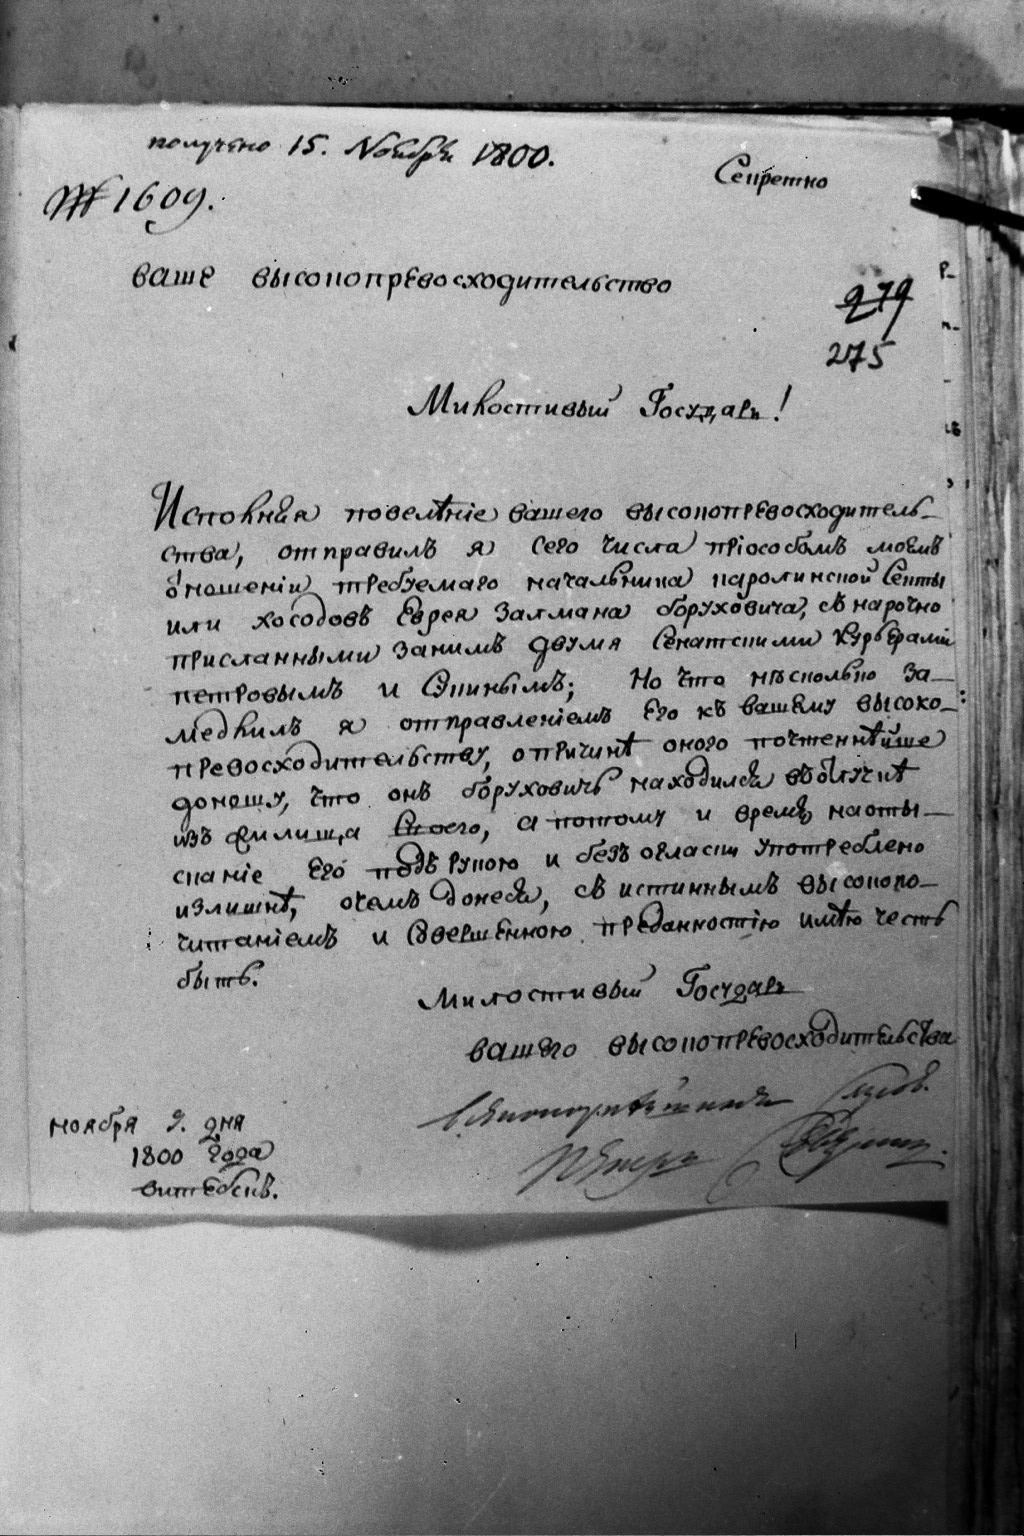 получено 15. Ноября 1800.
Секретно
№ 1609.
ваше высокопревосходительство
279
275
Милостивый Государь!
Исполняя повелѣніе вашего высокопревосходитель-
ства, отправилъ я сего числа приособомъ моемъ
отношеніи требуемаго начальника каролинской Секты
или хосодовъ Еврея Залмана боруховича, съ нарочно
присланными заними двумя Сенатскими курьерами
петровымъ и ; Но что нѣсколько за-
медлилъ я отправленіемъ Его къ вашему высоко-
превосходительству, опричинѣ оного почтеннѣйше
доношу, что онъ боруховичь находился въ отлучкѣ
изъ жилища Своего, а потому и время наоты-
сканіе Его подъ рукою и безъ огласки употреблено
излишнѣ, очемъ донеся, съ истиннымъ высокопо-
читаніемъ и совершенною преданностію имѣю честь
быть.
Милостивый Государь
вашего высокопревосходительства
всепокорнѣйший слуга
ноября 9. дня
1800 года
витебскъ.